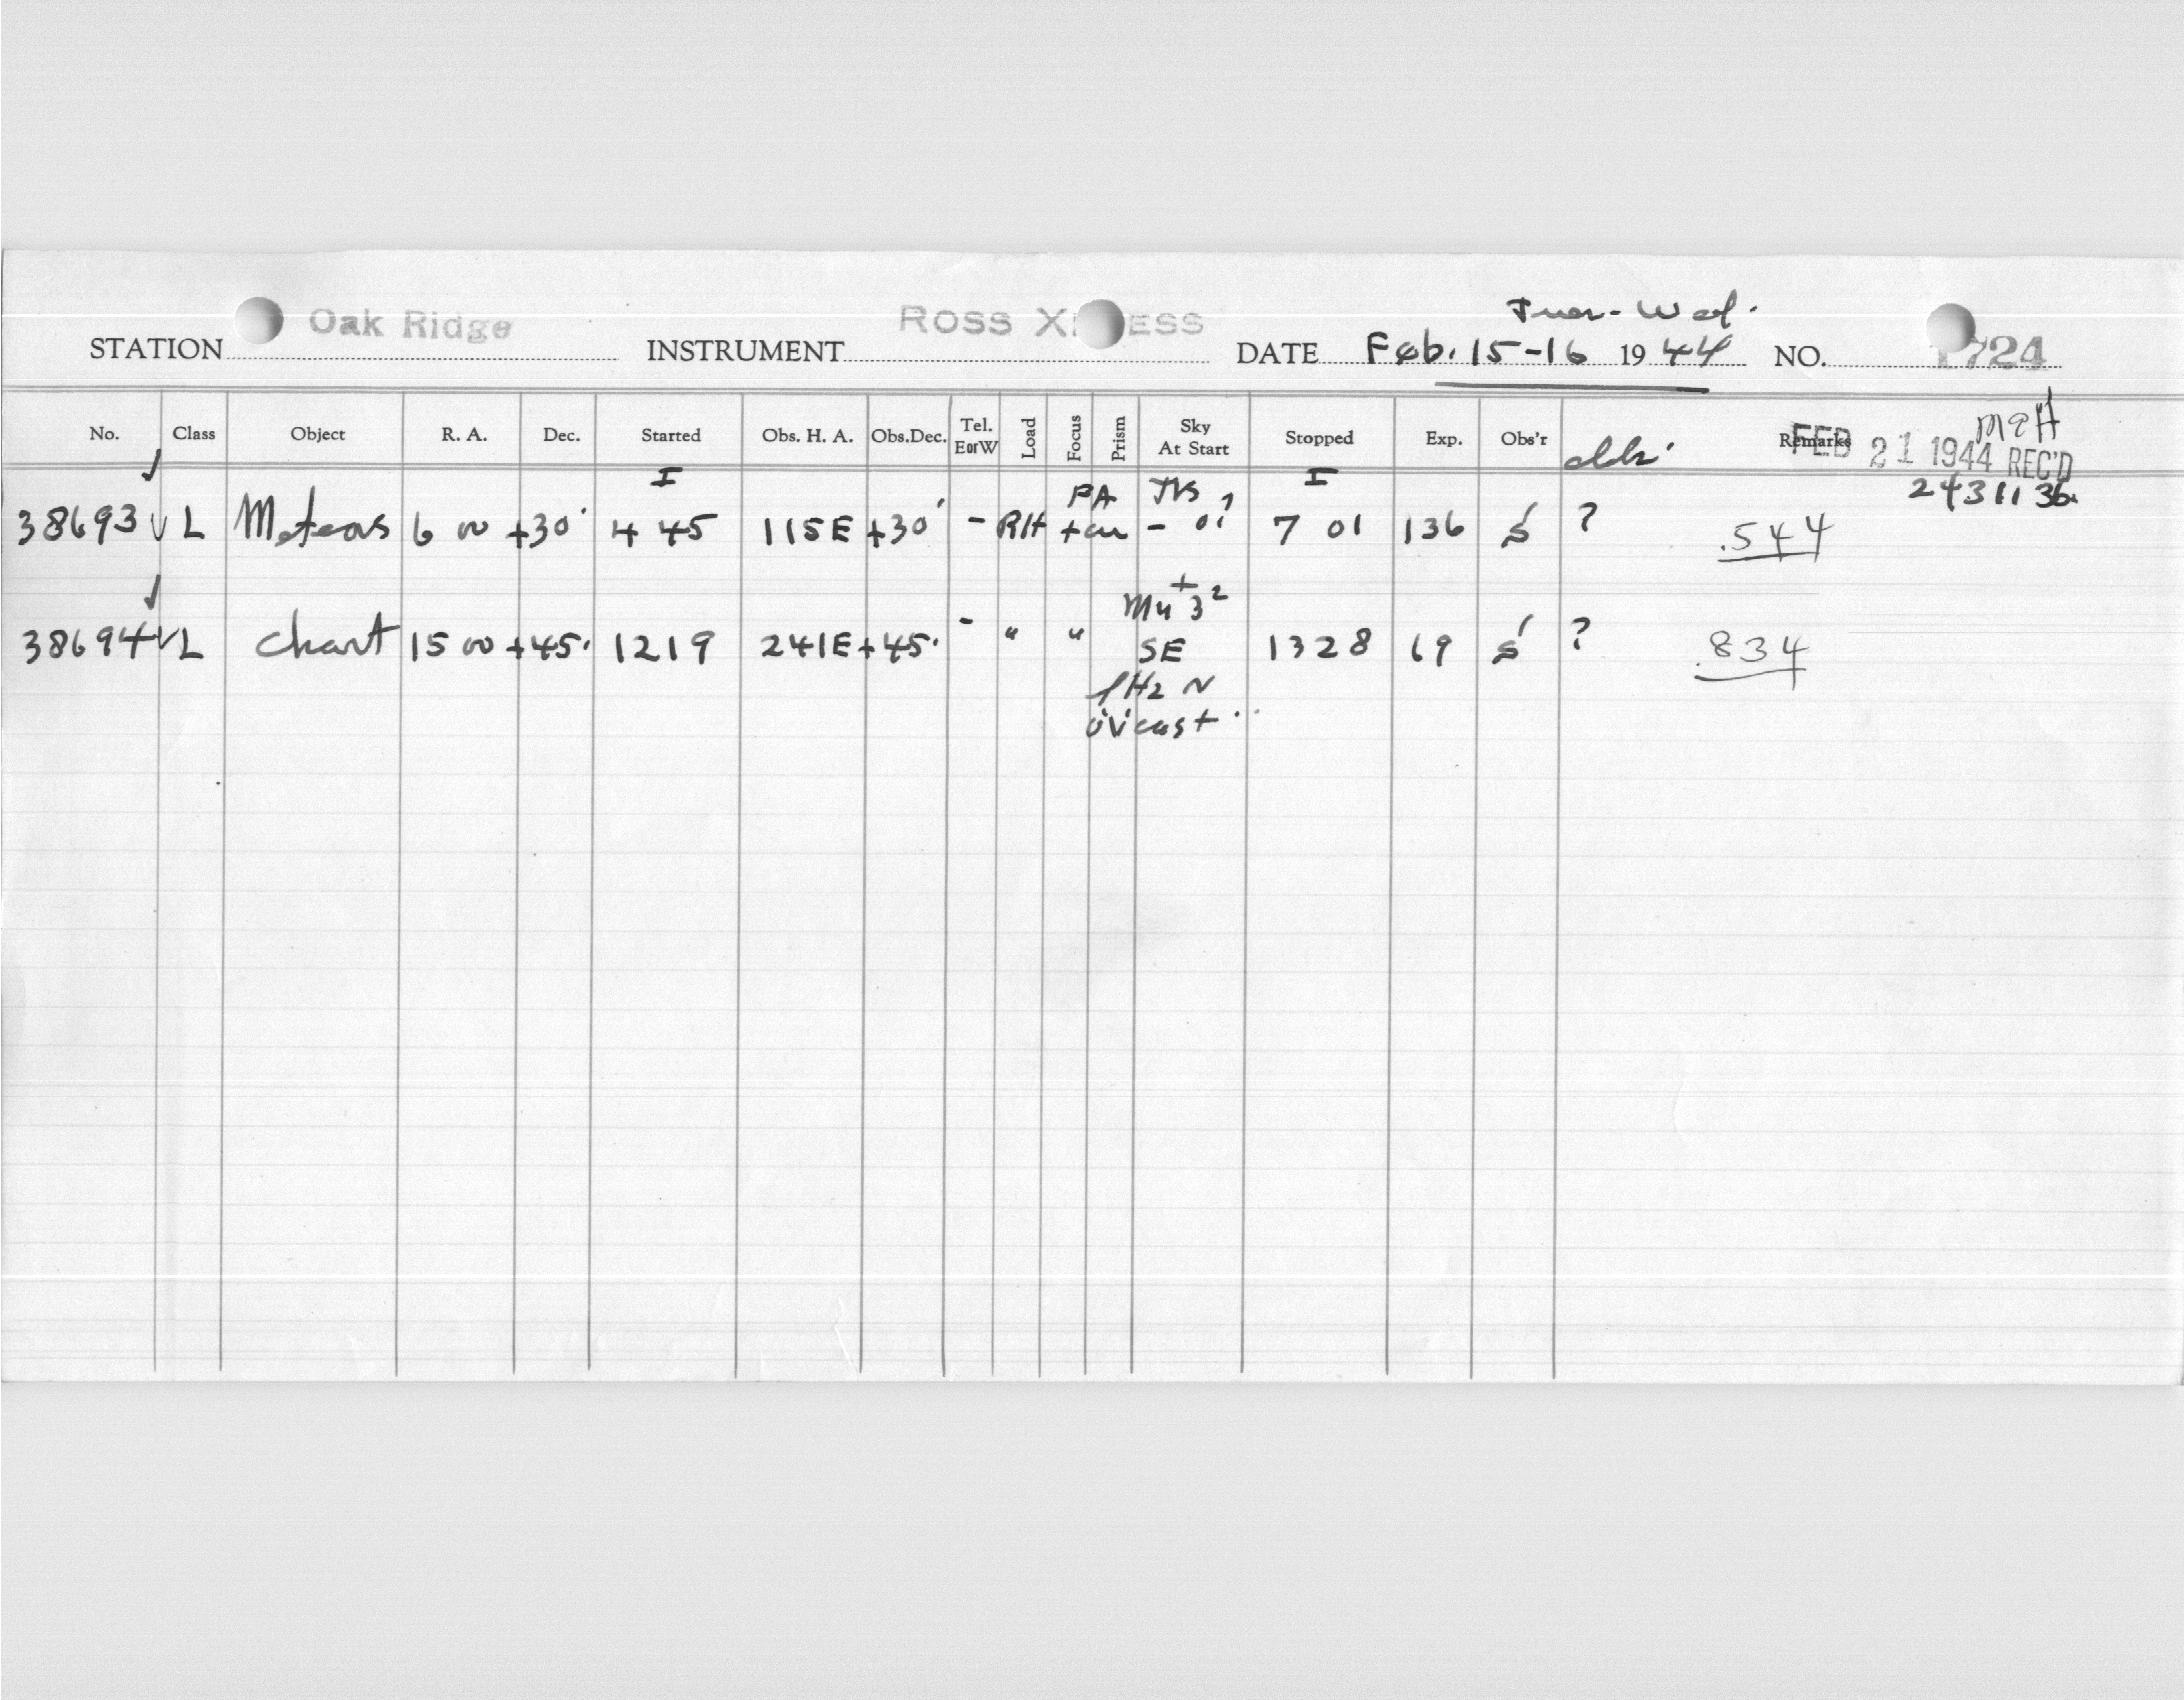 Tues - Wed.
STATION Oak Ridge INSTRUMENT ROSS X ESS DATE Feb. 15-16 1944 NO. 1724
No. Class Object R. A. Dec. Started Obs. H. A. Obs.Dec. Tel. EorW Load Focus Prism Sky At Start Stopped Exp. Obs'r Remarks
FEB 21 1944 REC'D
I I 2431136.
38693 √ L Meteors 6 00 +30° 4 45 115E +30° - RH PA 7 01 136 S ? .544
38694 √ L Chart 15 00 +45° 1219 241E +45° - " " SE 1328 69 S ? .834